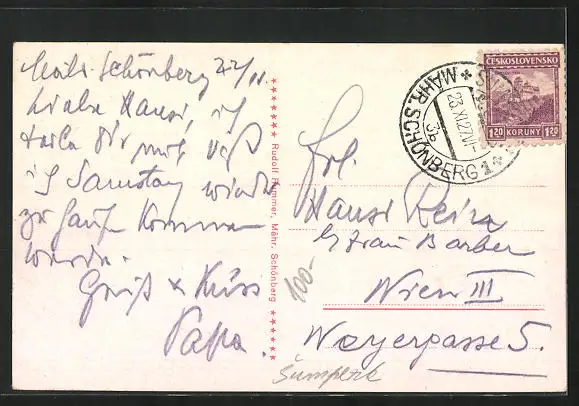 Mähr. Schönberg 22/11.
Liebe Hansi, ich
teile Dir mit daß
ich Samstag wieder
zu Hause kommen
werde.
Gruß & Kuss
Papa.
Rudolf Hummer, Mähr. Schönberg
100-
ČESKOSLOVENSKO
1.20 KORUNY 1.20
MÄHR. SCHÖNBERG 1
23.XI.27
3b
Frl.
Hansi
b/ Frau Barber
Wien III
Wayergasse 5.
Šumperk